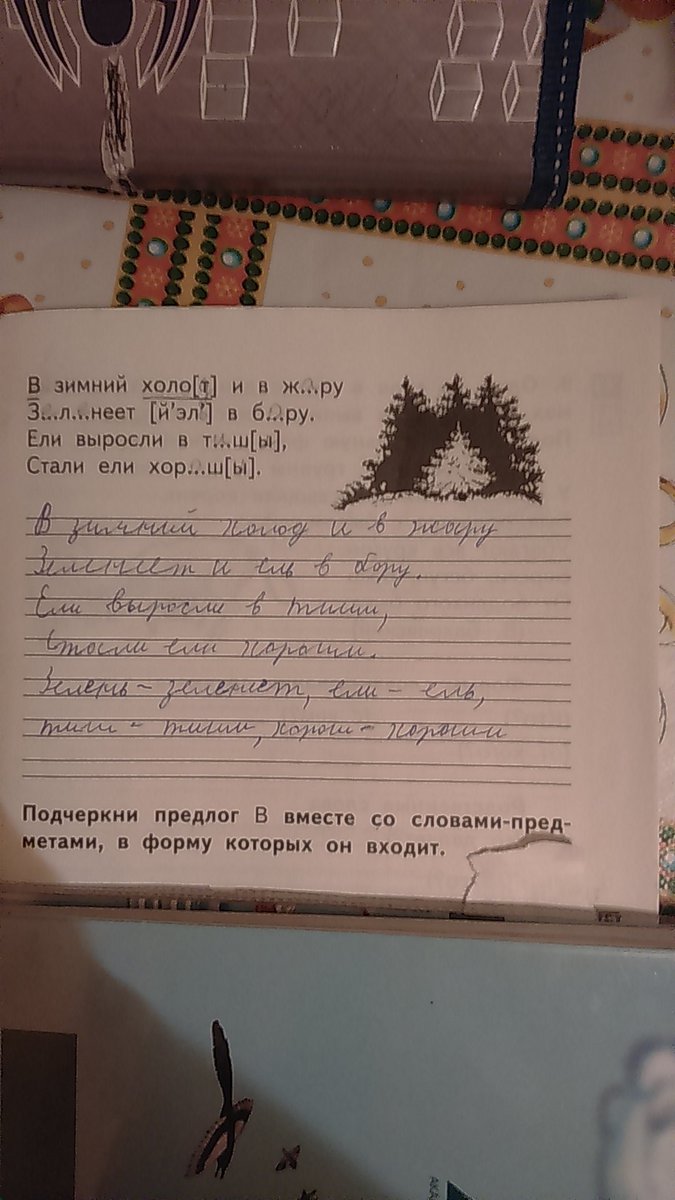 В зимний холо[т] и в ж...ру
З...л...неет [й'эл'] в б...ру.
Ели выросли в т...ш[ы],
Стали ели хор...ш[ы].
В зимний холод и в жару
Зеленеет и ель в бору.
Ели выросли в тиши,
Стали ели хороши.
Зелень - зеленеет, ели - ель,
тиш - тиши, хорош - хороши
Подчеркни предлог В вместе со словами-пред-
метами, в форму которых он входит.